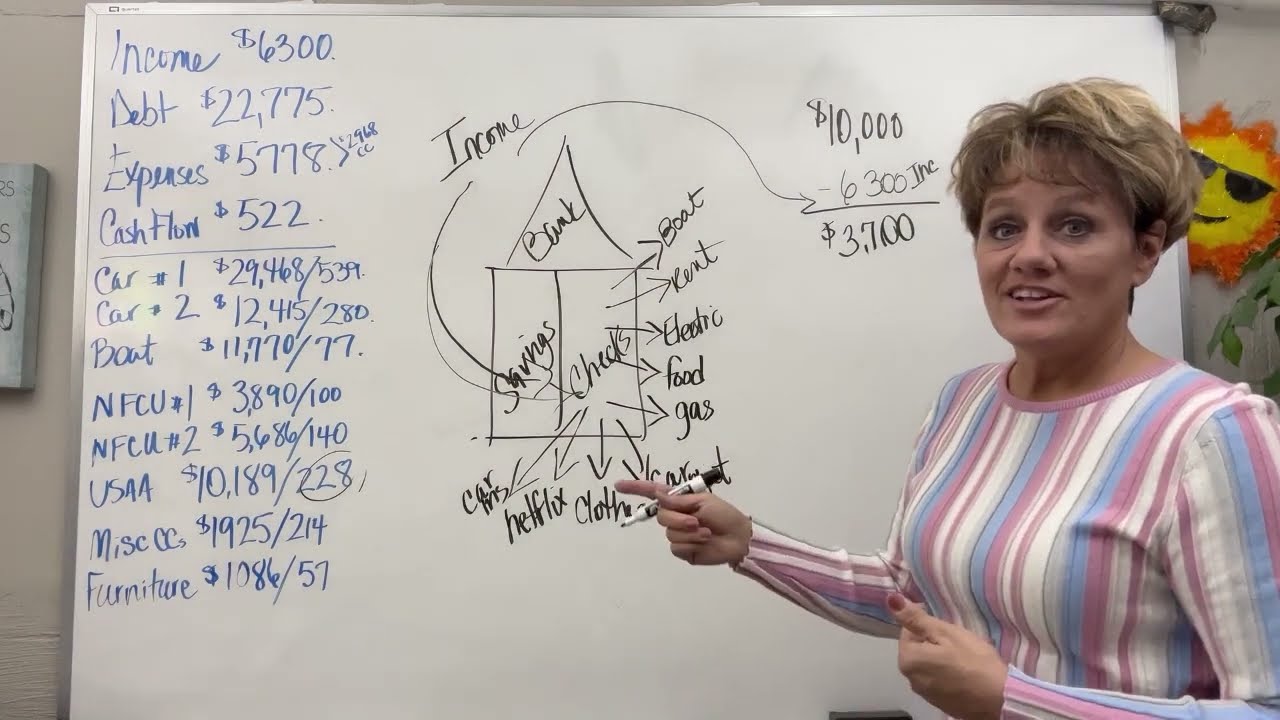 Income $6300.
Debt $22,775.
+
Expenses $5778.
2968
CC
CashFlow $522.
Car #1 $29,468/539.
Car #2 $12,415/280.
Boat $11,770/77.
NFCU#1 $3,890/100
NFCU#2 $5,686/140
USAA $10,189/228
Misc CCs $1925/214
Furniture $1086/57
Income
Bank
Savings
Checks
Boat
Rent
Electric
food
gas
car
ins
netflix
$10,000
-6300 Inc
$3,700
RS
S